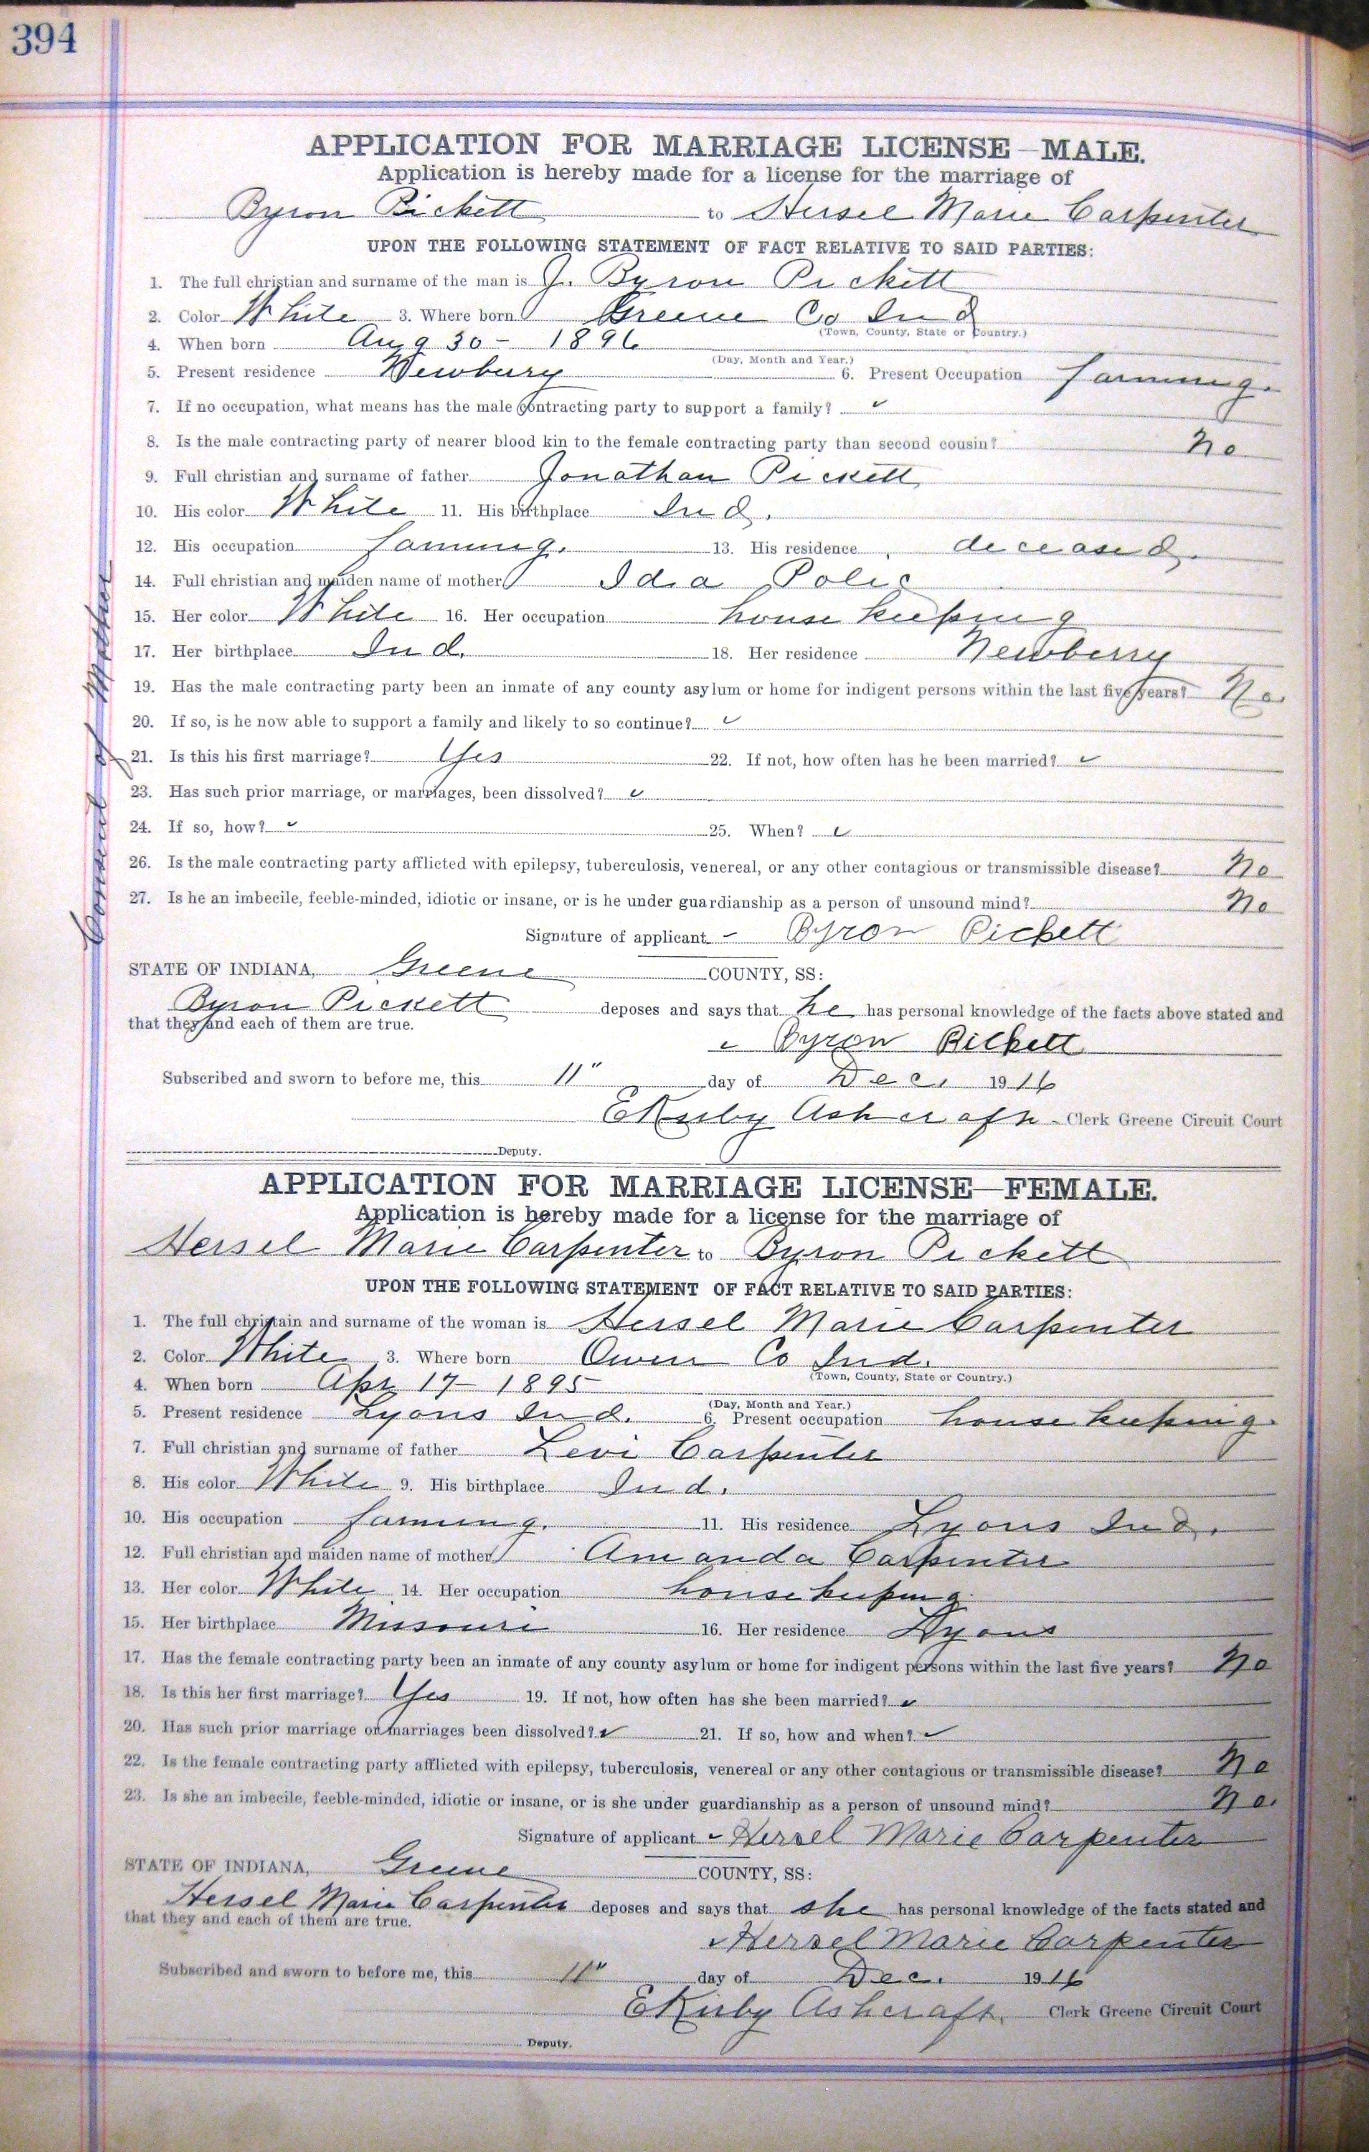 394
APPLICATION FOR MARRIAGE LICENSE—MALE.
Application is hereby made for a license for the marriage of
Byron Pickett to Hersel Marie Carpenter
UPON THE FOLLOWING STATEMENT OF FACT RELATIVE TO SAID PARTIES:
1. The full christian and surname of the man is J. Byron Pickett
2. Color White 3. Where born Greene Co Ind
(Town, County, State or Country.)
4. When born Aug 30 - 1896
(Day, Month and Year.)
5. Present residence Newbury 6. Present Occupation farming.
7. If no occupation, what means has the male contracting party to support a family? ✓
8. Is the male contracting party of nearer blood kin to the female contracting party than second cousin? No
9. Full christian and surname of father Jonathan Pickett
10. His color White 11. His birthplace Ind.
12. His occupation farming. 13. His residence deceased.
14. Full christian and maiden name of mother Ida
15. Her color White 16. Her occupation house keeping
17. Her birthplace Ind. 18. Her residence Newberry
19. Has the male contracting party been an inmate of any county asylum or home for indigent persons within the last five years? No.
20. If so, is he now able to support a family and likely to so continue? ✓
21. Is this his first marriage? Yes 22. If not, how often has he been married? ✓
23. Has such prior marriage, or marriages, been dissolved? ✓
24. If so, how? ✓ 25. When? ✓
26. Is the male contracting party afflicted with epilepsy, tuberculosis, venereal, or any other contagious or transmissible disease? No
27. Is he an imbecile, feeble-minded, idiotic or insane, or is he under guardianship as a person of unsound mind? No
Consent of Mother
Signature of applicant - Byron Pickett
STATE OF INDIANA, Greene COUNTY, SS:
Byron Pickett deposes and says that he has personal knowledge of the facts above stated and
that they and each of them are true.
✓ Byron Pickett
Subscribed and sworn to before me, this 11" day of Dec. 1916
E Kirby Ashcraft - Clerk Greene Circuit Court
Deputy.
APPLICATION FOR MARRIAGE LICENSE—FEMALE.
Application is hereby made for a license for the marriage of
Hersel Marie Carpenter to Byron Pickett
UPON THE FOLLOWING STATEMENT OF FACT RELATIVE TO SAID PARTIES:
1. The full christain and surname of the woman is Hersel Marie Carpenter
2. Color White 3. Where born Owen Co Ind.
(Town, County, State or Country.)
4. When born Apr 17 - 1895
(Day, Month and Year.)
5. Present residence Lyons Ind. 6. Present occupation house keeping.
7. Full christian and surname of father Levi Carpenter
8. His color White 9. His birthplace Ind.
10. His occupation farming. 11. His residence Lyons Ind.
12. Full christian and maiden name of mother Amanda Carpenter
13. Her color White 14. Her occupation house keeping
15. Her birthplace Missouri 16. Her residence Lyons
17. Has the female contracting party been an inmate of any county asylum or home for indigent persons within the last five years? No
18. Is this her first marriage? Yes 19. If not, how often has she been married? ✓
20. Has such prior marriage or marriages been dissolved? ✓ 21. If so, how and when? ✓
22. Is the female contracting party afflicted with epilepsy, tuberculosis, venereal or any other contagious or transmissible disease? No
23. Is she an imbecile, feeble-minded, idiotic or insane, or is she under guardianship as a person of unsound mind? No.
Signature of applicant ✓ Hersel Marie Carpenter
STATE OF INDIANA, Greene COUNTY, SS:
Hersel Marie Carpenter deposes and says that she has personal knowledge of the facts stated and
that they and each of them are true.
✓ Hersel Marie Carpenter
Subscribed and sworn to before me, this 11" day of Dec. 1916
E Kirby Ashcraft, Clerk Greene Circuit Court
Deputy.